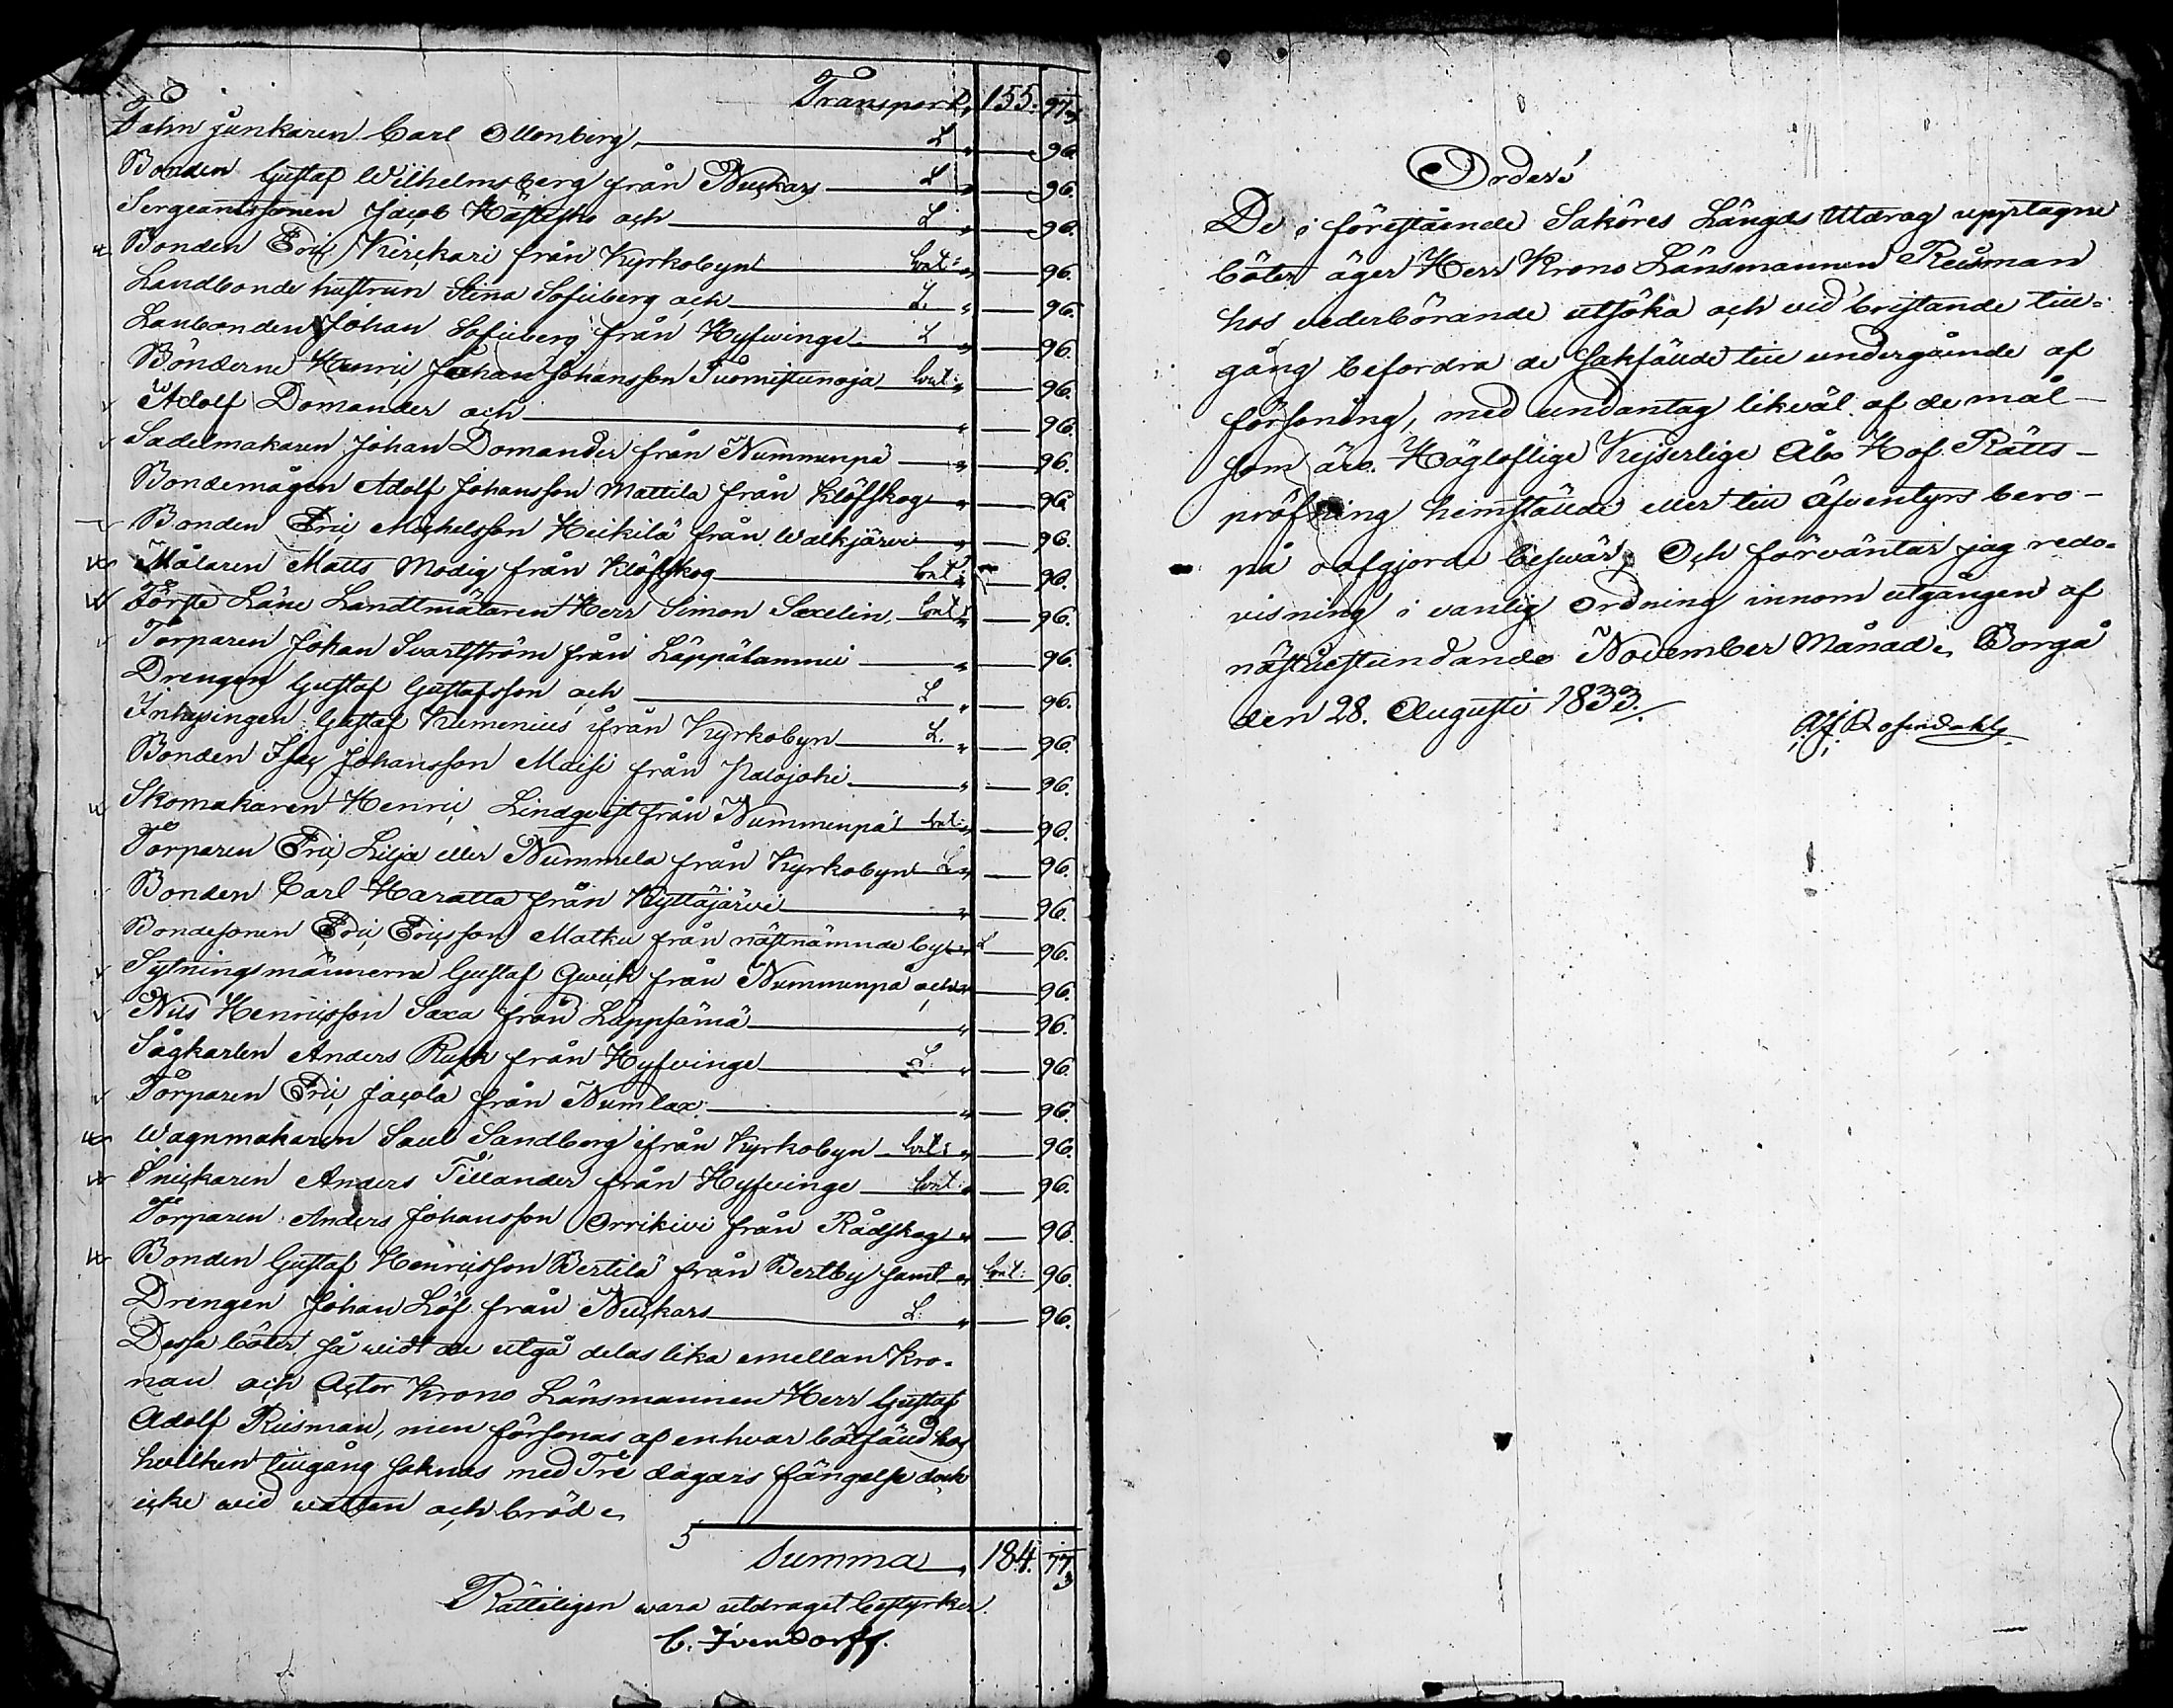 Transport, 155. 97 3
Fahnjunkaren Carl Ollonberg, L " — 96.
Bonden Gustaf Wilhelmsberg från Nuckars L " — 96.
Sergeantssonen Jacob och L " — 96.
Bonden Eric Kirckari från Kyrkobyn Cont: " — 96.
Landbonde hustrun Stina Sofieberg och L. " — 96.
Lanbonden Johan Sofieberg från Hyfvinge L " — 96.
Bönderne Henric Johan Johansson Suomistunoja Cont: " — 96.
Adolf Domander och " — 96.
Sadelmakaren Johan Domander från Nummenpä " — 96.
Bondemågen Adolf Johansson Mattila från Klöfskog " — 96.
Bonden Eric Michelsson Heikilä från Walkjärvi " — 96.
Målaren Matts Modig från Klöfskog Cont: " — 96.
Förste Läne Landtmätaren Herr Simon Saxelin Cont: " — 96.
Torparen Johan Svartström från Läppälammi " — 96.
Drengen Gustaf Gustafsson och L " — 96.
Inhysingen Gustaf Kumenius ifrån Kyrkobyn L. " — 96.
Bonden Isac Johansson Maisi från Palojoki " — 96.
Skomakaren Henric Lindqvist från Nummenpä Cont: " — 96.
Torparen Eric Lilja eller Nummela från Kyrkobyn L " — 96.
Bonden Carl Haratta från Kyttäjärvi " — 96.
Bondesonen Eric Ericsson Matku från nästnämnde by " L — 96.
Sytningsmännerne Gustaf Qwick från Nummenpä och " — 96.
Nils Henricsson Saxa från Läppsämä " — 96.
Sågkarlen Anders Rusk från Hyfvinge L: " — 96.
Torparen Eric Jacola från Numlax " — 96.
Wagnmakaren Saul Sandberg ifrån Kyrkobyn Cont: " — 96.
Snickaren Anders Tillander från Hyfvinge Cont: " — 96.
Torparen Anders Johansson Orrikivi från Rådskog " — 96.
Bonden Gustaf Henricsson Bertilä från Bertby samt " Cont: 96.
Drengen Johan Löf från Nuckars L: " — 96.
Dessa böter så widt de utgå delas lika emellan Kro-
nan och Actor Krono Länsmannen Herr Gustaf
Adolf Riisman, men försonas af enhvar bötfäld hos
hvilken tillgång saknas med Tre dagars fängelse dock
icke wid watten och bröd
Summa, 184. 77 3
Rätteligen wara utdraget bestyrker.
C. Ivendorff.
Orders!
De i förestående Saköres Längds Utdrag upptagne
böter äger Herr Krono Länsmannen Riisman
hos vederbörande utsöka och vid bristande till-
gång befordra de sakfälde till undergående af
försoning, med undantag likväl af de mål
som äro Högloflige Kejserlige Åbo Hof Rätts
pröfning hemstälde eller till äfventyrs bero
på oafgjorde besvär; Och förväntar jag redo-
visning i vanlig ordning innom utgången af
nästuestundande November Månad. Borgå
den 28. Augusti 1833.
A. J. Rosendahl.